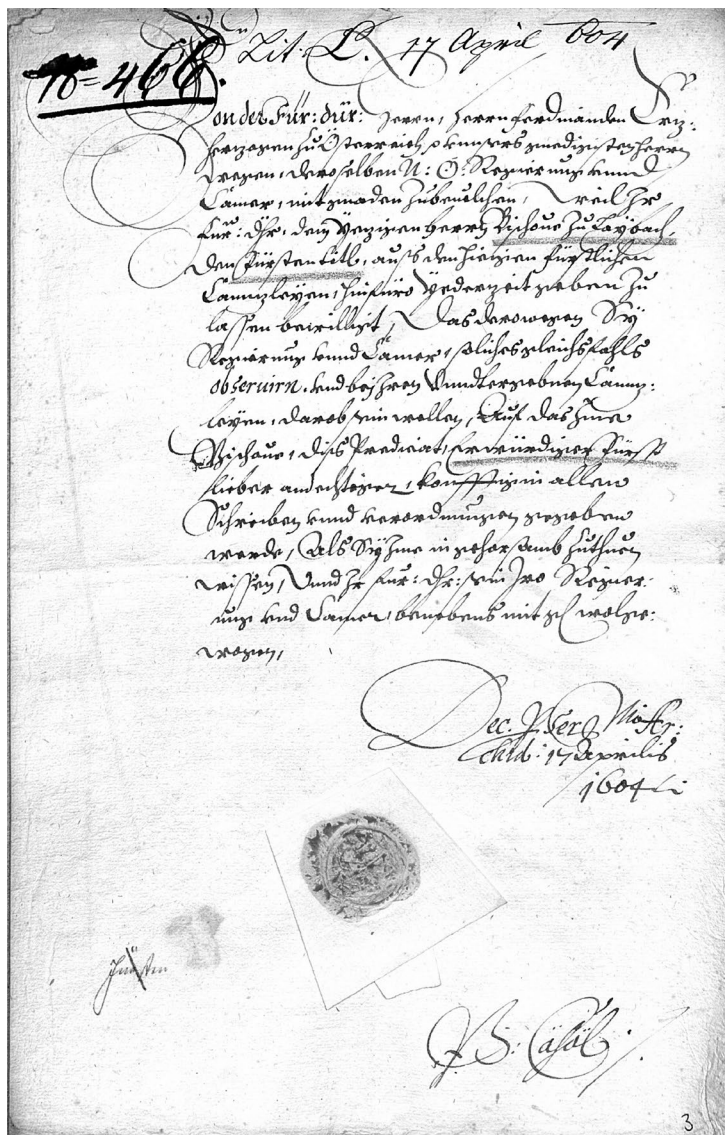 Lit. L. 17 April 604
18=468.
Von der Für: dür: Herrn, Herrn Ferdinanden Ertz-
herzogen zu Österreich, unsers gnedigisten Herrn
wegen, deroselben N: Ö: Regierung unnd
Camer, mit gnaden zubeuelhen, Weil Ir
Für: Dhr: dem yezigen Herrn Bischoue zu Laybach,
den Fürsten titl, auss den hieigen fürstlichen
Canntzleyen, hinfüro yederzeit geben zu
lassen bewilligt, Das derowegen Sy
Regierung unnd Camer, solches gleichsfahls
obseruirn, und bey Iren Unndtergebnen Cannz-
leyen, darob sein wollen, Auf das Ime
Bischoue, diss Predicat, Erwürdiger Fürst
lieber andechtiger, konfftig in allen
Schreiben unnd verordnungen gegeben
werde, Als Sy Ime in gehorsamb zuthuen
wissen, Unnd Ir Für: Dhr: sein Iro Regier-
ung und Camer, benebens mit wolge-
wogen,
17 Aprilis
1604
P: Casal
3